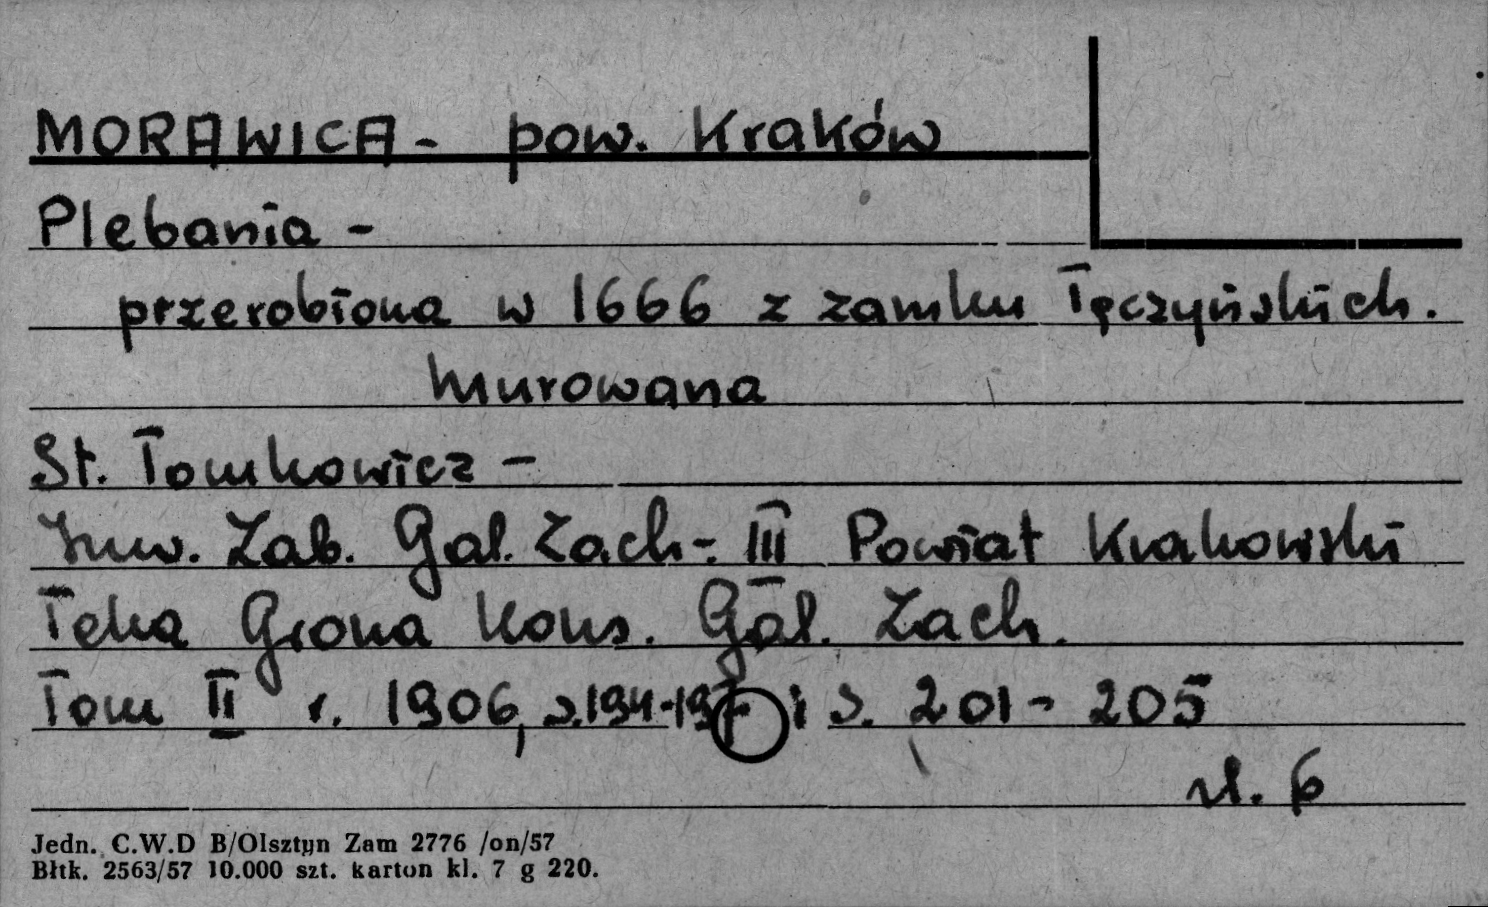 MORAWICA - pow. Kraków
Plebania -
przerobiona w 1666 z zamku Tęczyńskich.
murowana
St. Tomkowicz -
Inw. Zab. Gal. Zach-: III Powiat Krakowski
Teka Grona Kons. Gal. Zach.
Tom II r. 1906, s. 194-197 i s. 201 - 205
il. 6
Jedn. C.W.D B/Olsztyn Zam 2776 /on/57
Błtk. 2563/57 10.000 szt. karton kl. 7 g 220.